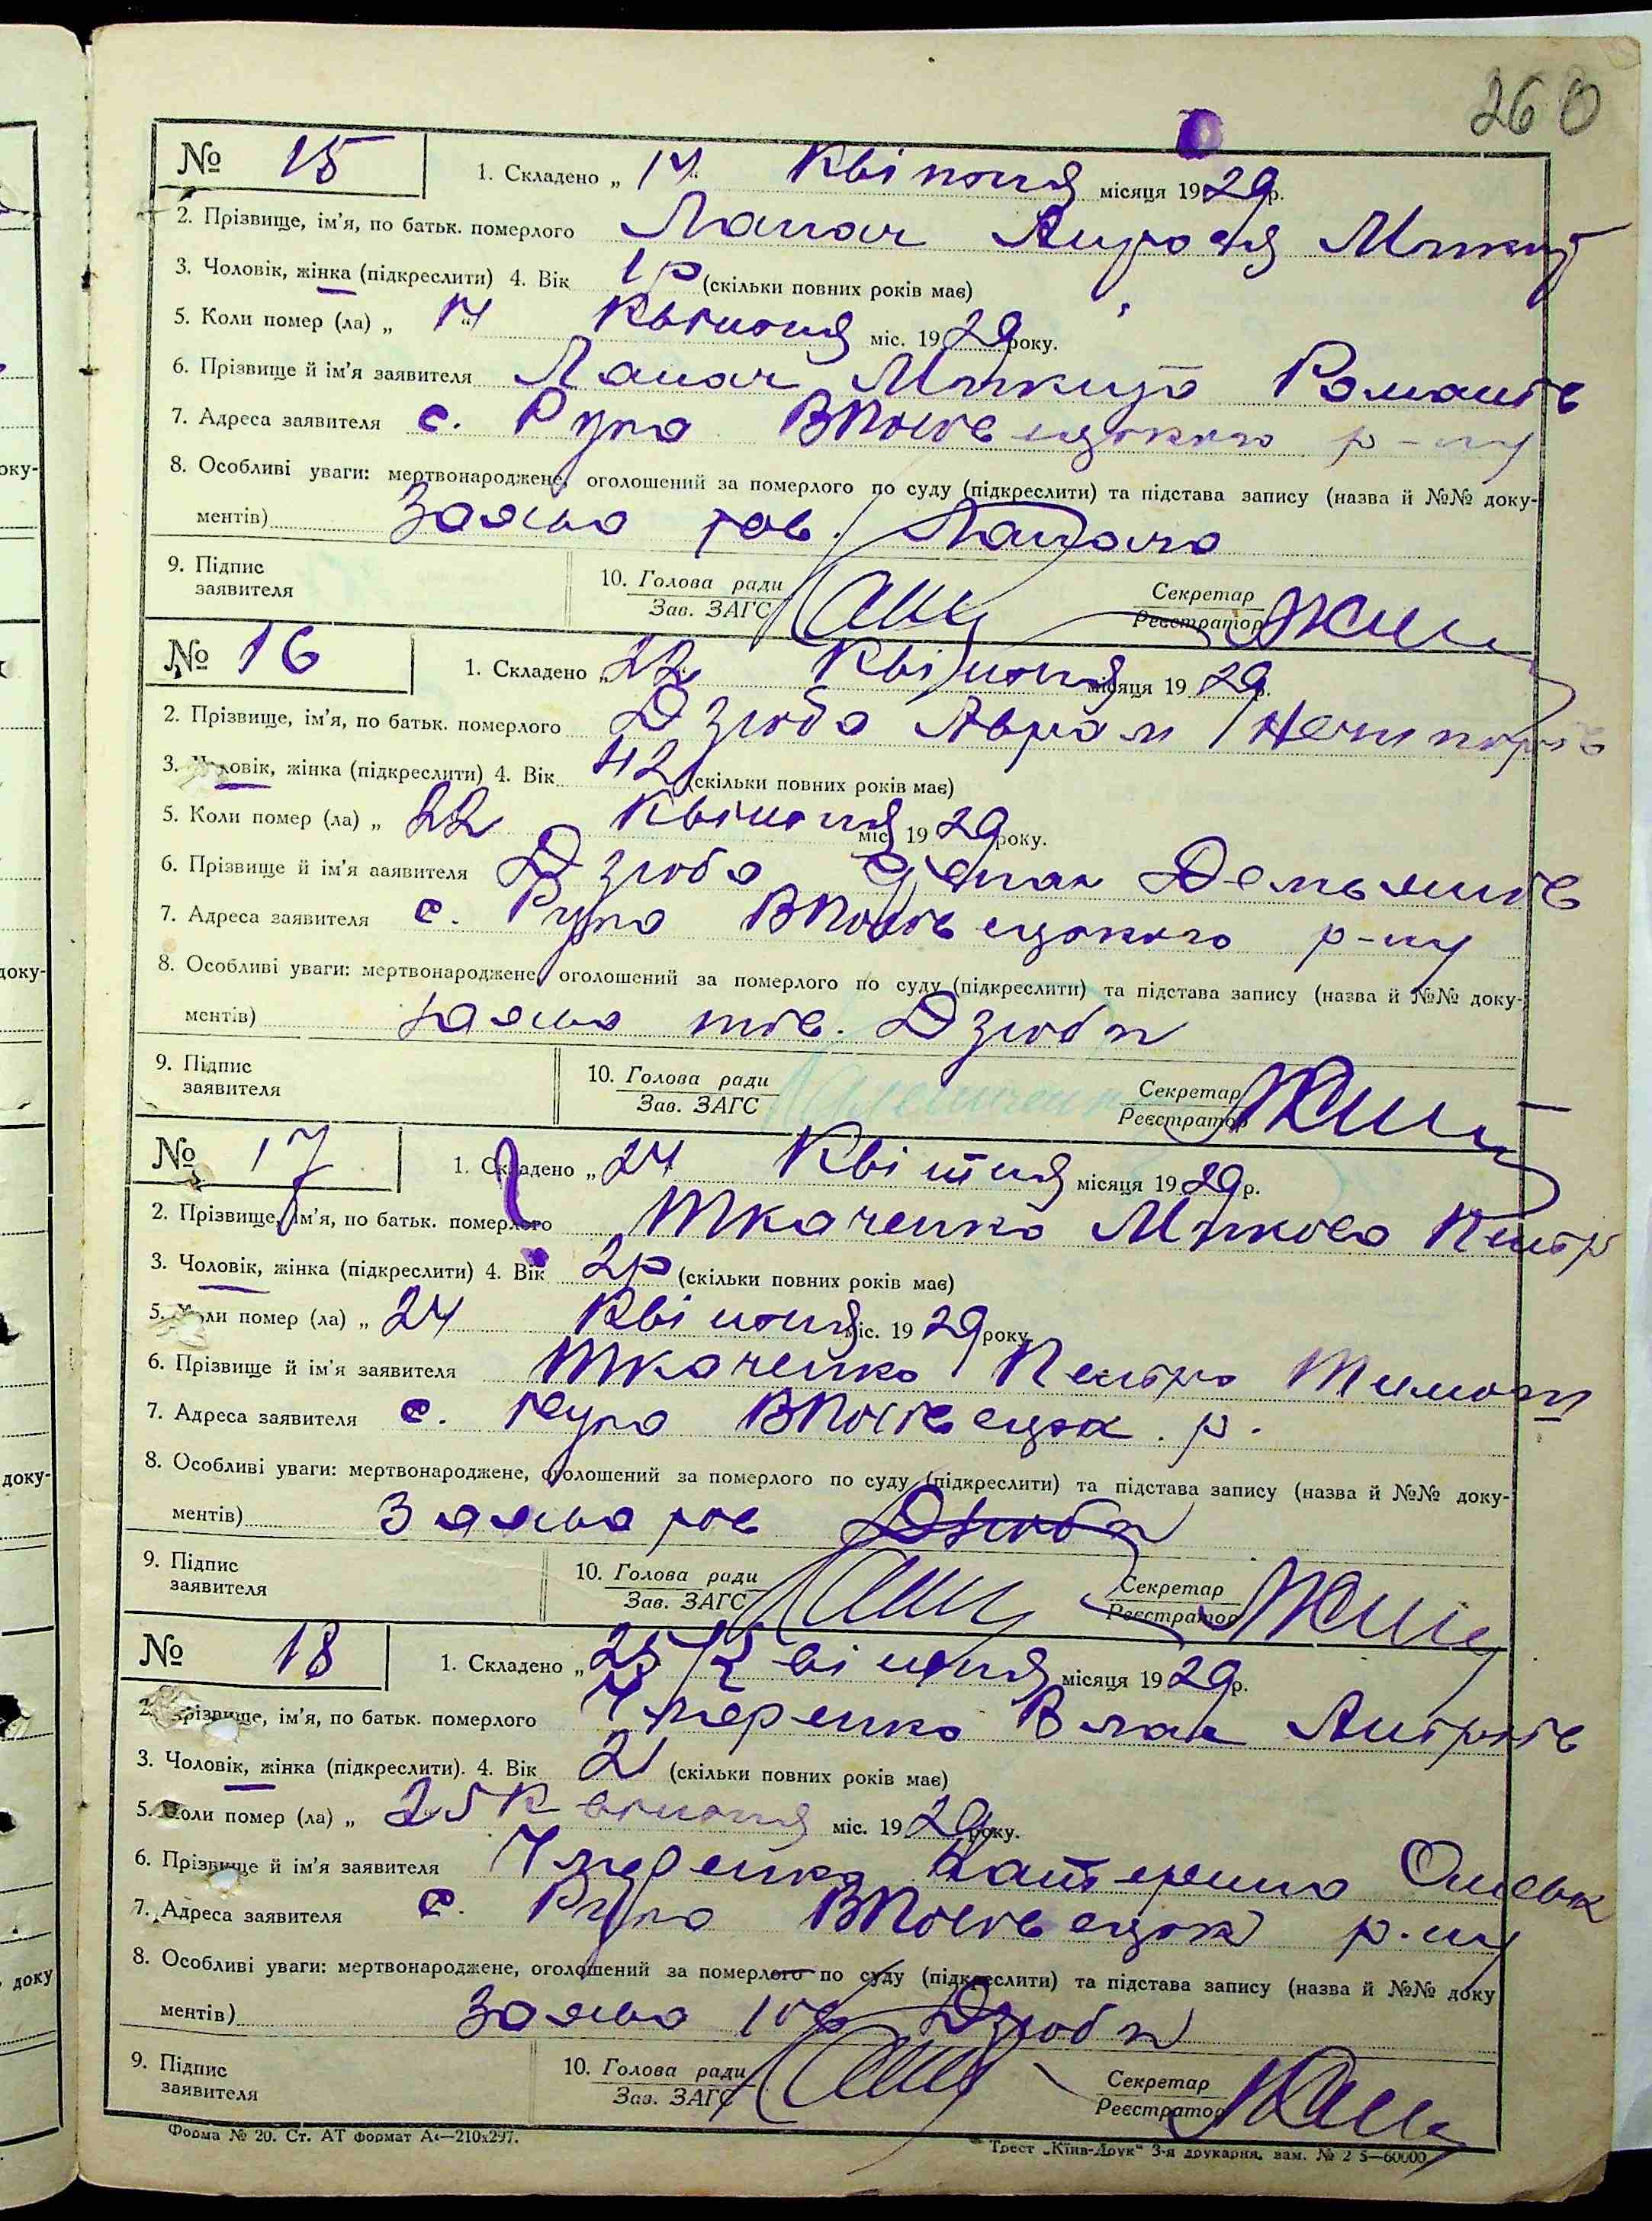 260
№ 15 1. Складено „ 14 " Квітня місяця 1929 р.
2. Прізвище, ім'я, по батьк. померлого Лапач
3. Чоловік, жінка (підкреслити) 4. Вік 1 р (скільки повних років має)
5. Коли помер (ла) „ 14 " Квітня міс. 1929 року.
6. Прізвище й ім'я заявителя Лапач Микита Романів
7. Адреса заявителя с. Руда р-ну
8. Особливі уваги: мертвонароджене, оголошений за померлого по суду (підкреслити) та підстава запису (назва й №№ доку-
ментів) Заява тов. Лапача
9. Підпис заявителя 10. Голова ради Зав. ЗАГС Секретар Реєстратор
№ 16 1. Складено „ 22 " Квітня місяця 1929 р.
2. Прізвище, ім'я, по батьк. померлого Дзюба Аврам Нечипорів
3. Чоловік, жінка (підкреслити) 4. Вік 42 (скільки повних років має)
5. Коли помер (ла) „ 22 Квітня міс. 1929 року.
6. Прізвище й ім'я заявителя Дзюба Степан Демьянів
7. Адреса заявителя с. Руда р-ну
8. Особливі уваги: мертвонароджене, оголошений за померлого по суду (підкреслити) та підстава запису (назва й №№ доку-
ментів) Заява тов. Дзюби
9. Підпис заявителя 10. Голова ради Зав. ЗАГС Секретар Реєстратор
№ 17 1. Складено „ 24 Квітня місяця 1929 р.
2. Прізвище, ім'я, по батьк. померлого Ткаченко Микола Петр
3. Чоловік, жінка (підкреслити) 4. Вік 2 р (скільки повних років має)
5. Коли помер (ла) „ 24 Квітня міс. 1929 року.
6. Прізвище й ім'я заявителя Ткаченко Петро Тимош
7. Адреса заявителя с. Руда р.
8. Особливі уваги: мертвонароджене, оголошений за померлого по суду (підкреслити) та підстава запису (назва й №№ доку-
ментів) Заява тов Дзюби
9. Підпис заявителя 10. Голова ради Зав. ЗАГС Секретар Реєстратор
№ 18 1. Складено „ 25 Квітня місяця 1929 р.
2. Прізвище, ім'я, по батьк. померлого
3. Чоловік, жінка (підкреслити). 4. Вік 21 (скільки повних років має)
5. Коли помер (ла) „ 25 Квітня міс. 1929 року.
6. Прізвище й ім'я заявителя Катерина
7. Адреса заявителя с. Руда р-ну
8. Особливі уваги: мертвонароджене, оголошений за померлого по суду (підкреслити) та підстава запису (назва й №№ доку
ментів) Заява тов Дзюби
9. Підпис заявителя 10. Голова ради Зав. ЗАГС Секретар Реєстратор
Форма № 20. Ст. АТ формат А4—210x297. Трест „Київ-Друк" 3-я друкарня, зам. № 2 5—60000